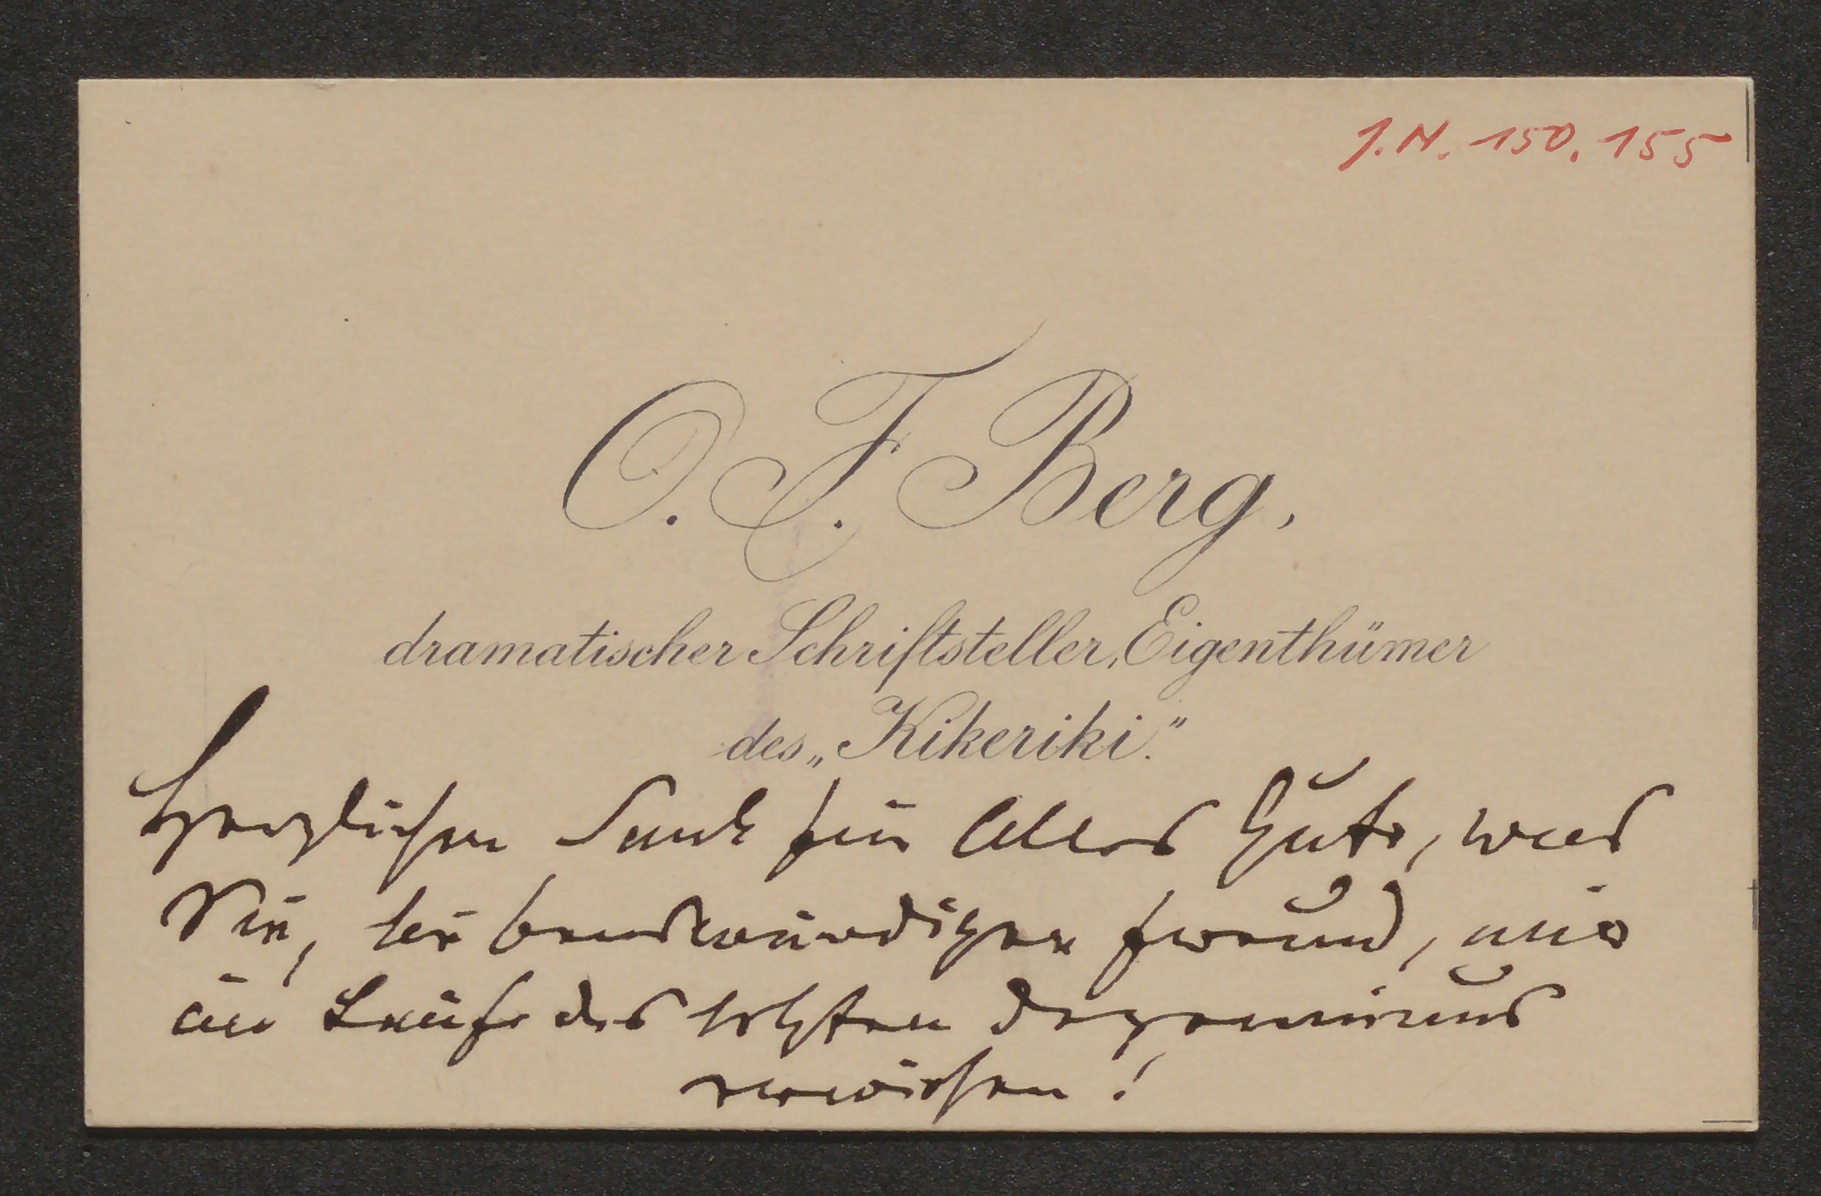 J.N. 150.155
O. F. Berg,
dramatischer Schriftsteller, Eigenthümer
des „Kikeriki."
Herzlichen Dank für Alles Gute, was
Sie, Freund, mir
im Laufe des letzten Dezenniums
erwiesen!